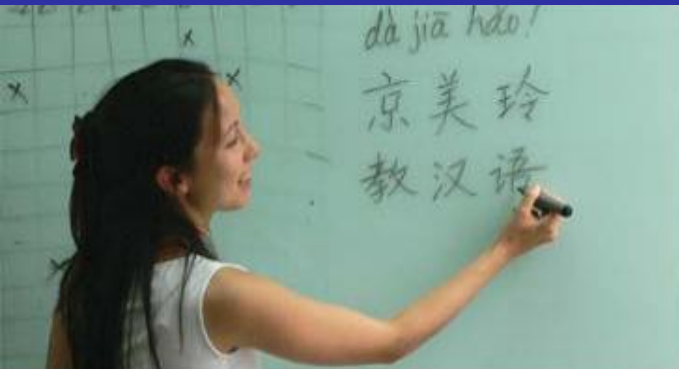 dà jiā hǎo!
京美玲
教汉语